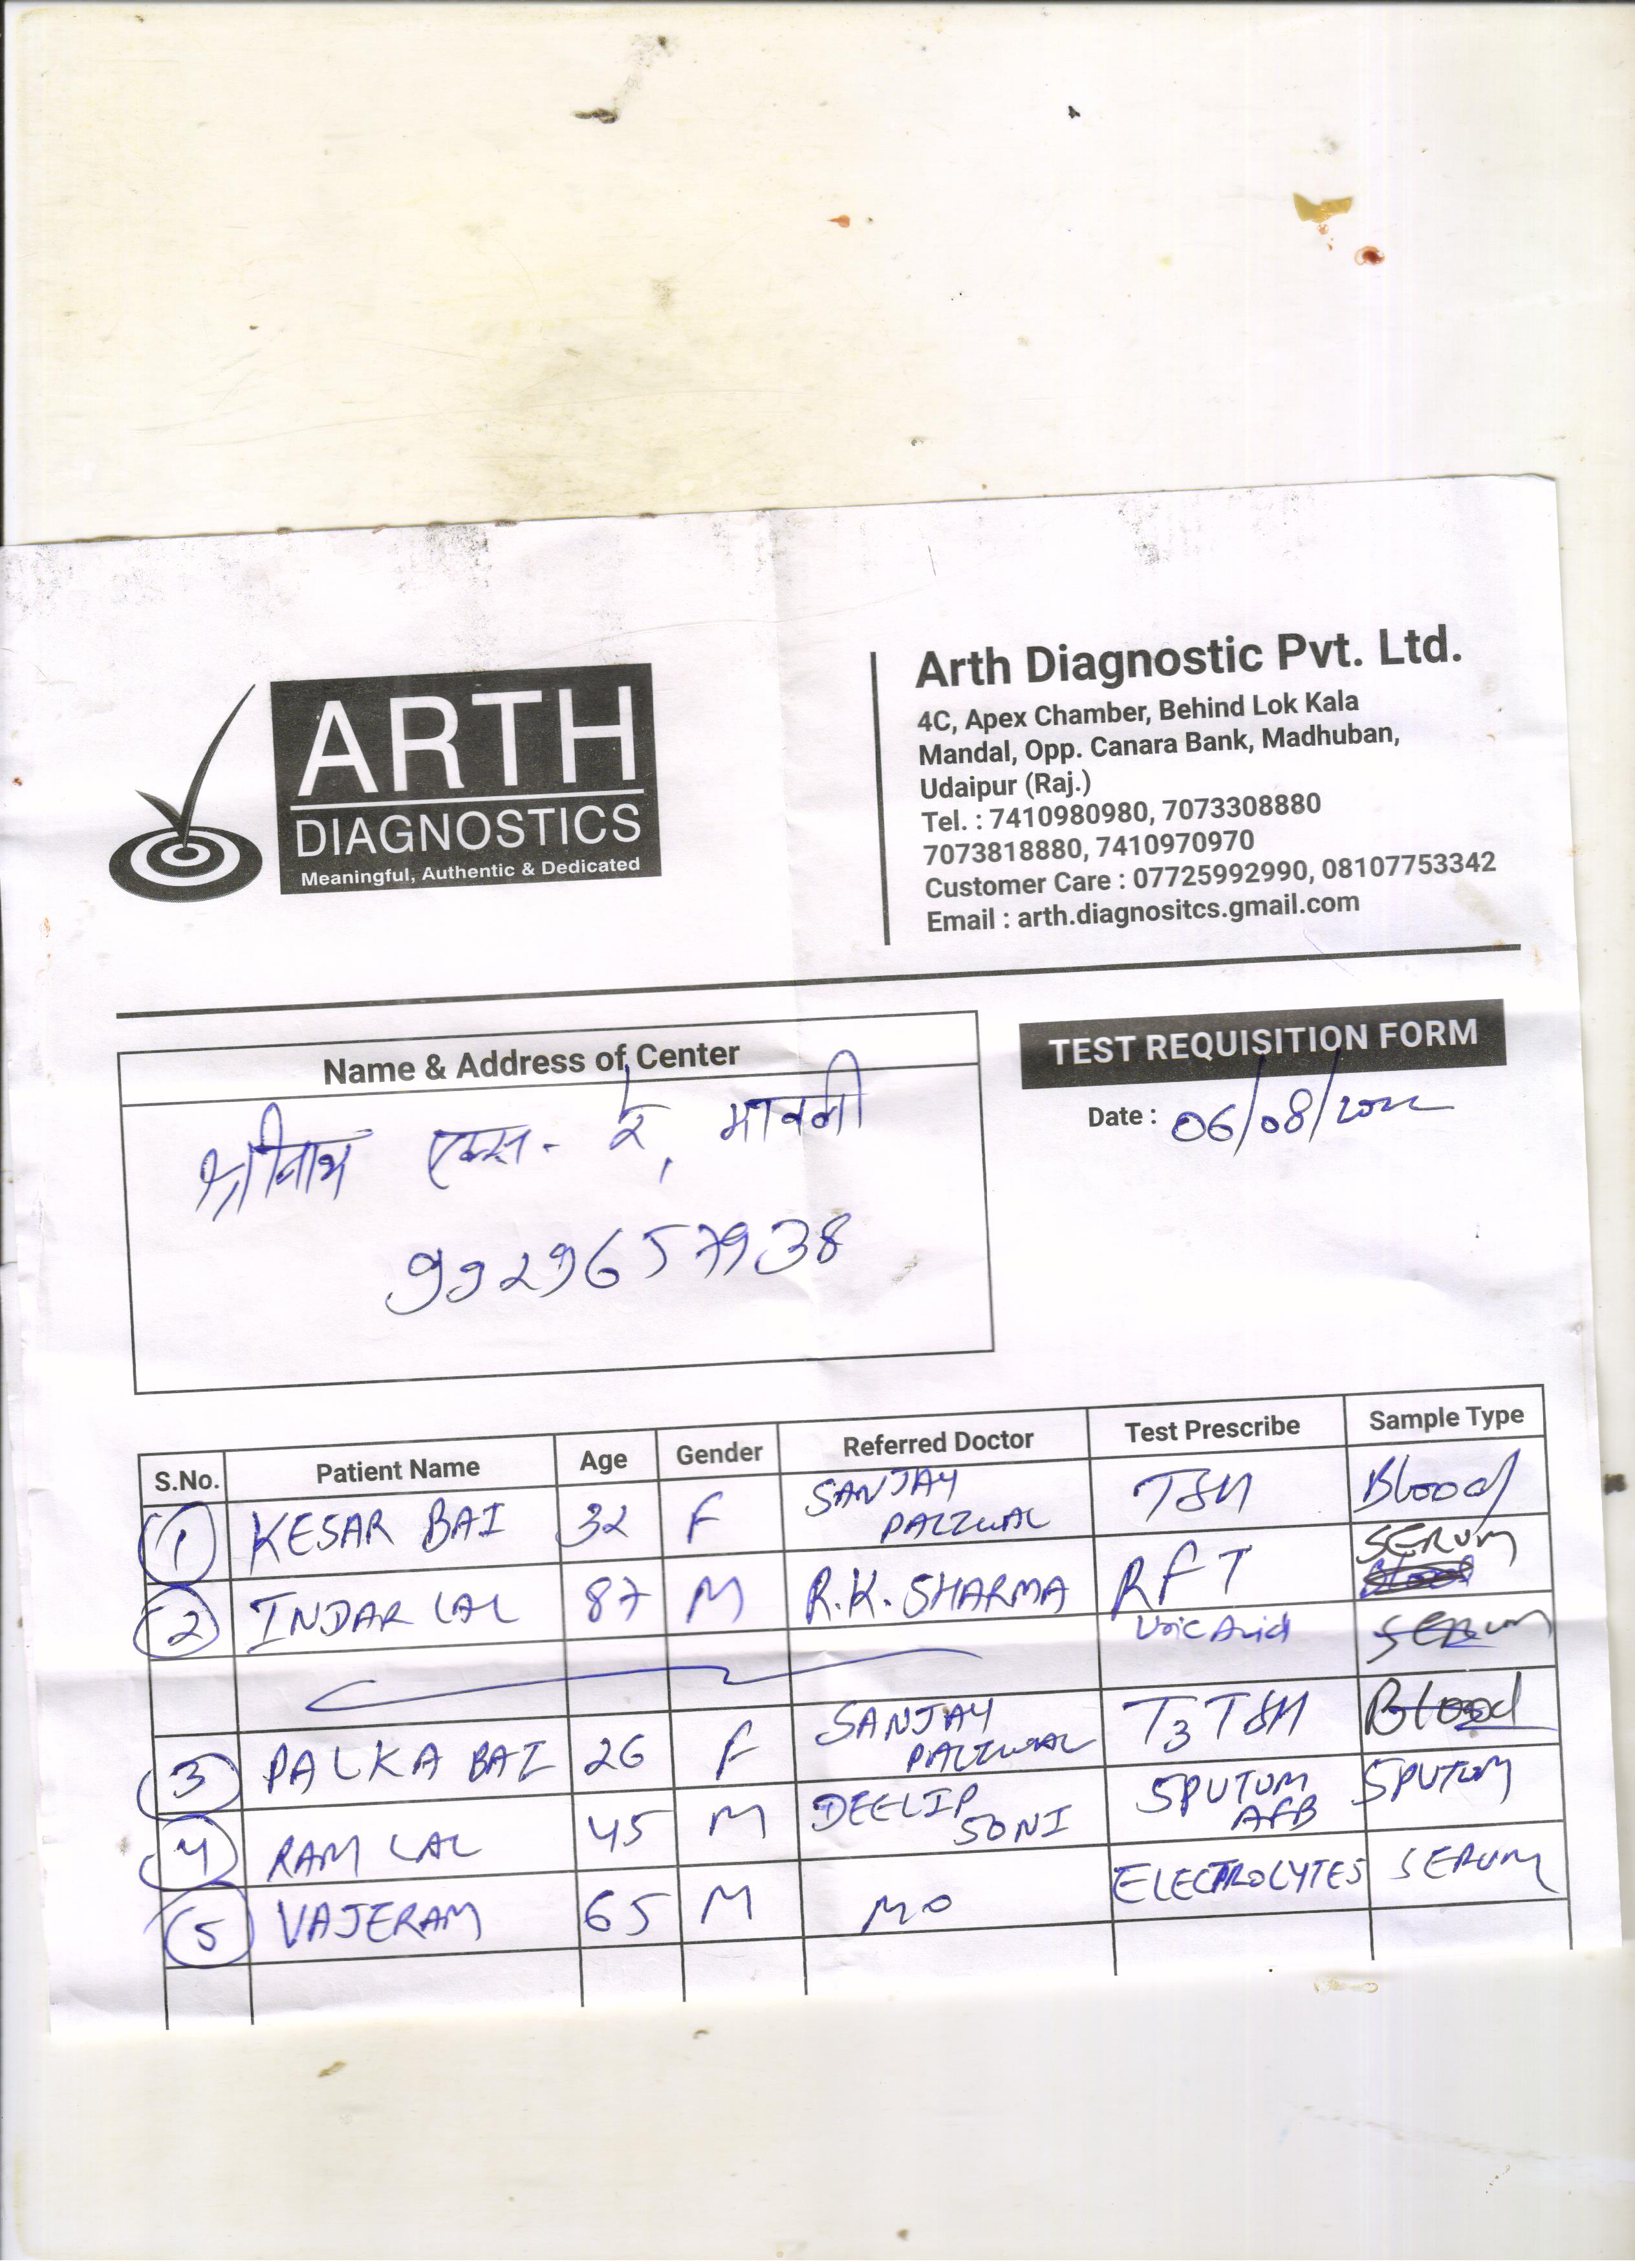 ARTH
DIAGNOSTICS
Meaningful, Authentic & Dedicated
Arth Diagnostic Pvt. Ltd.
4C, Apex Chamber, Behind Lok Kala
Mandal, Opp. Canara Bank, Madhuban,
Udaipur (Raj.)
Tel. : 7410980980, 7073308880
7073818880, 7410970970
Customer Care : 07725992990, 08107753342
Email : arth.diagnositcs.gmail.com
Name & Address of Center
श्रीनाथ एक्स-रे, मावली
9929657938
TEST REQUISITION FORM
Date : 06/08/2022
S.No. Patient Name Age Gender Referred Doctor Test Prescribe Sample Type
1 KESAR BAI 32 F SANJAY PALIWAL TSH Blood
2 INDAR LAL 87 M R.K. SHARMA RFT SERUM
Uric Acid SERUM
3 PALKA BAI 26 F SANJAY PALIWAL T3 TSH Blood
4 RAM LAL 45 M DEELIP SONI SPUTUM AFB SPUTUM
5 VAJERAM 65 M MO ELECTROLYTES SERUM